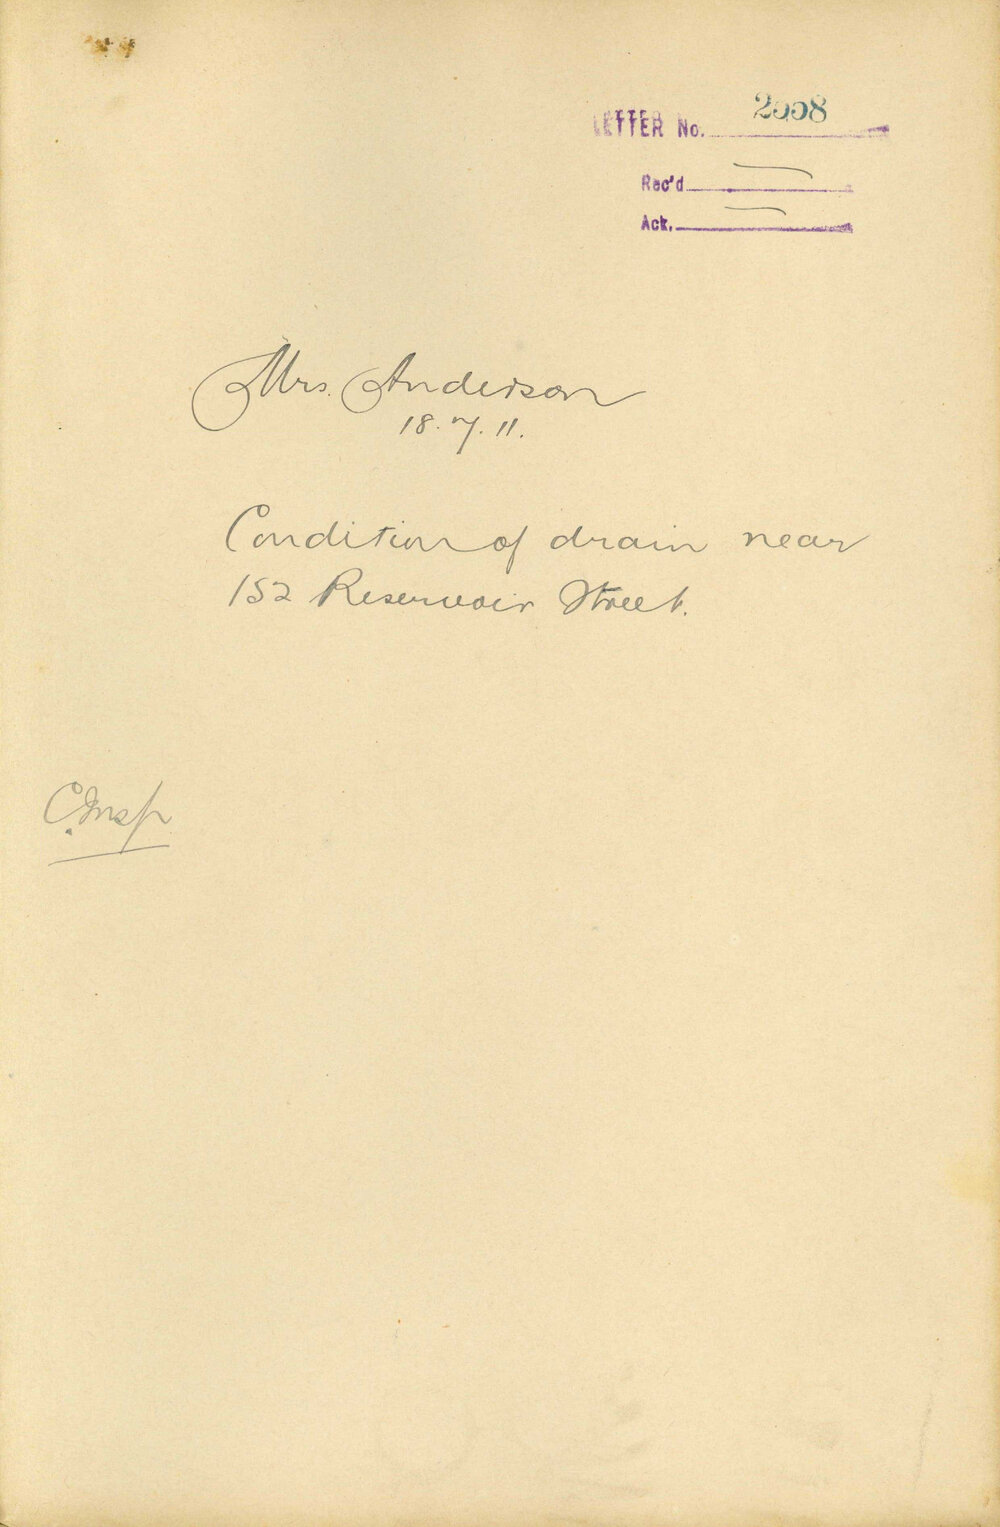 LETTER No. 2558
Rec'd
Ack.
Mrs. Anderson
18.7.11.
Condition of drain near
152 Reservoir Street.
C. Insp